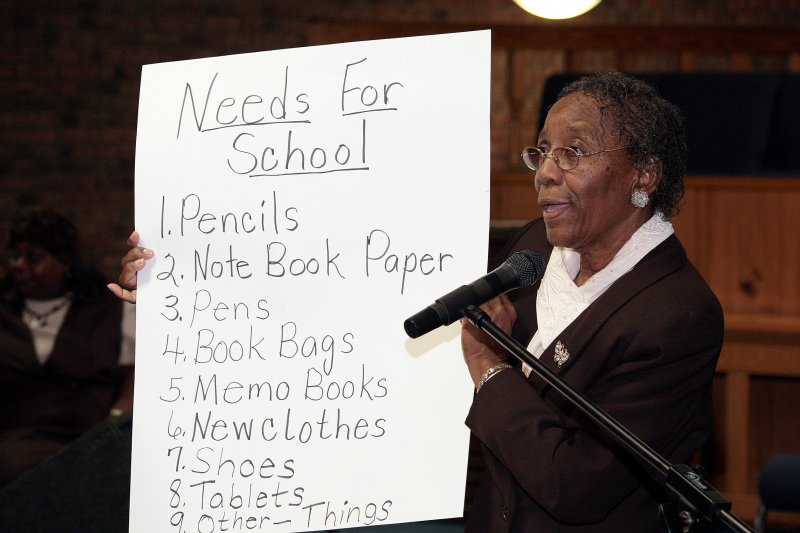 Needs For
School
1. Pencils
2. Note Book Paper
3. Pens
4. Book Bags
5. Memo Books
6. New clothes
7. Shoes
8. Tablets
9. Other - Things